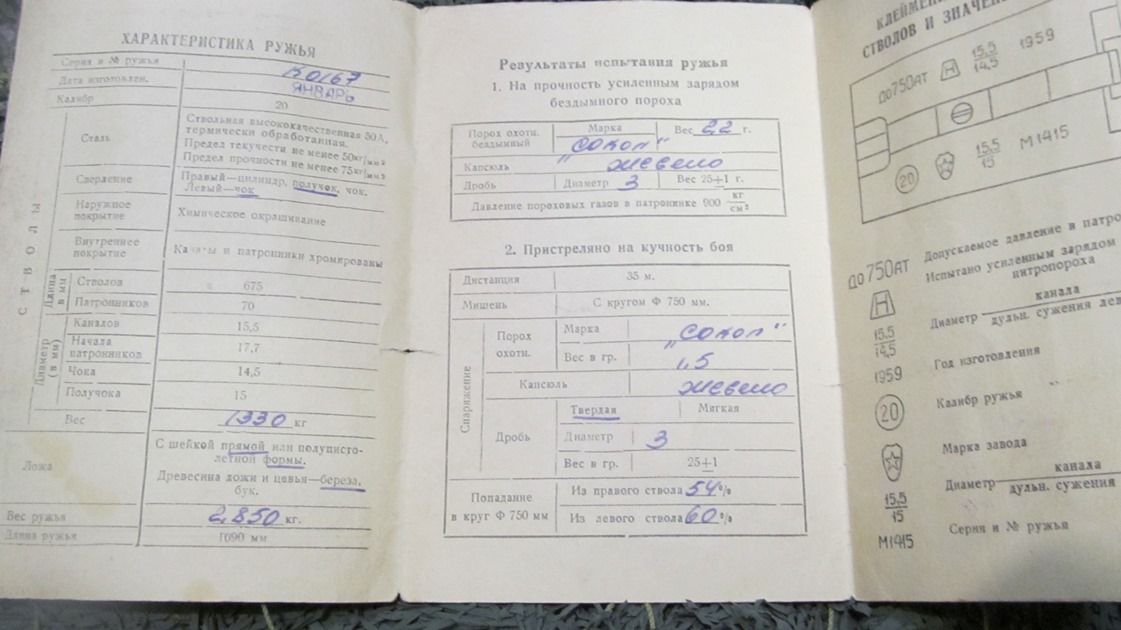 ХАРАКТЕРИСТИКА РУЖЬЯ
Серия и № ружья
0167
Дата изготовлен. ЯНВАРЬ
Калибр 20
СТВОЛЫ
Сталь
Ствольная высококачественная 50А,
термически обработанная.
Предел текучести не менее 50кг/мм²
Предел прочности не менее 75кг/мм²
Сверление
Правый—цилиндр, получок, чок.
Левый—чок
Наружное
покрытие
Химическое окрашивание
Внутреннее
покрытие
Каналы и патронники хромированы
Длина
в мм
Стволов 675
Патронников 70
Диаметр
(в мм)
Каналов 15,5
Начала
патронников
17,7
Чока 14,5
Получока 15
Вес 1330 кг
Ложа
С шейкой прямой или полуписто-
летной формы.
Древесина ложи и цевья—береза,
бук.
Вес ружья 2,850 кг.
Длина ружья 1090 мм
Результаты испытания ружья
1. На прочность усиленным зарядом
бездымного пороха
Порох охотн.
бездымный
Марка
"СОКОЛ"
Вес 2,2 г.
Капсюль жевело
Дробь Диаметр 3 Вес 25±1 г.
Давление пороховых газов в патроннике 900 кг/см²
2. Пристреляно на кучность боя
Дистанция 35 м.
Мишень С кругом Ф 750 мм.
Снаряжение
Порох
охотн.
Марка "СОКОЛ"
Вес в гр. 1,5
Капсюль жевело
Дробь
Твердая Мягкая
Диаметр 3
Вес в гр. 25±1
Попадание
в круг Ф 750 мм
Из правого ствола 54%
Из левого ствола 60%
СТВОЛОВ И
ДО 750АТ Н 15,5/14,5 1959
20 15,5/15 М1415
ДО 750АТ Допускаемое давление в
Н Испытано усиленным зарядом
нитропороха
15,5/14,5 Диаметр канала/дульн. сужения
1959 Год изготовления
20 Калибр ружья
Марка завода
15,5/15 Диаметр канала/дульн. сужения
М1415 Серия и № ружья